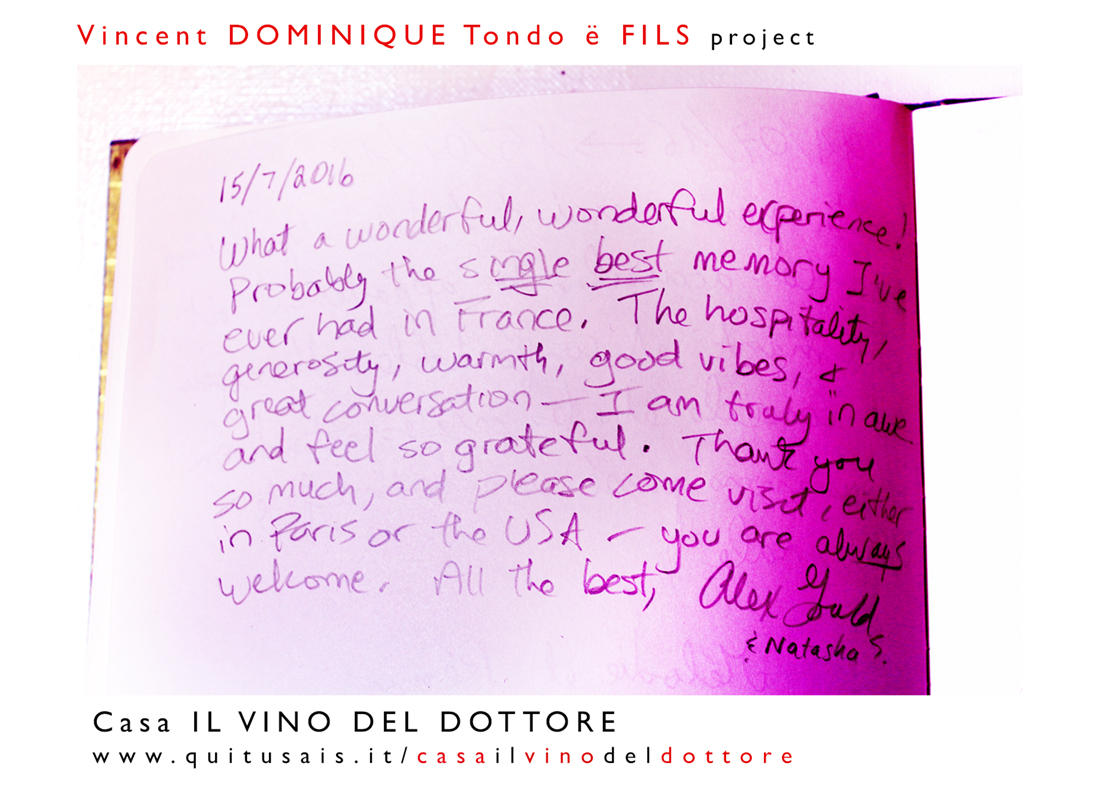 Vincent DOMINIQUE Tondo ë FILS project
15/7/2016
What a wonderful, wonderful experience!
Probably the single best memory I've
ever had in France. The hospitality,
generosity, warmth, good vibes, &
great conversation — I am truly in awe
and feel so grateful. Thank you
so much, and please come visit, either
in Paris or the USA – you are always
welcome. All the best, Alex Gould
& Natasha S.
Casa IL VINO DEL DOTTORE
www.quitusais.it/casailvinodeldottore